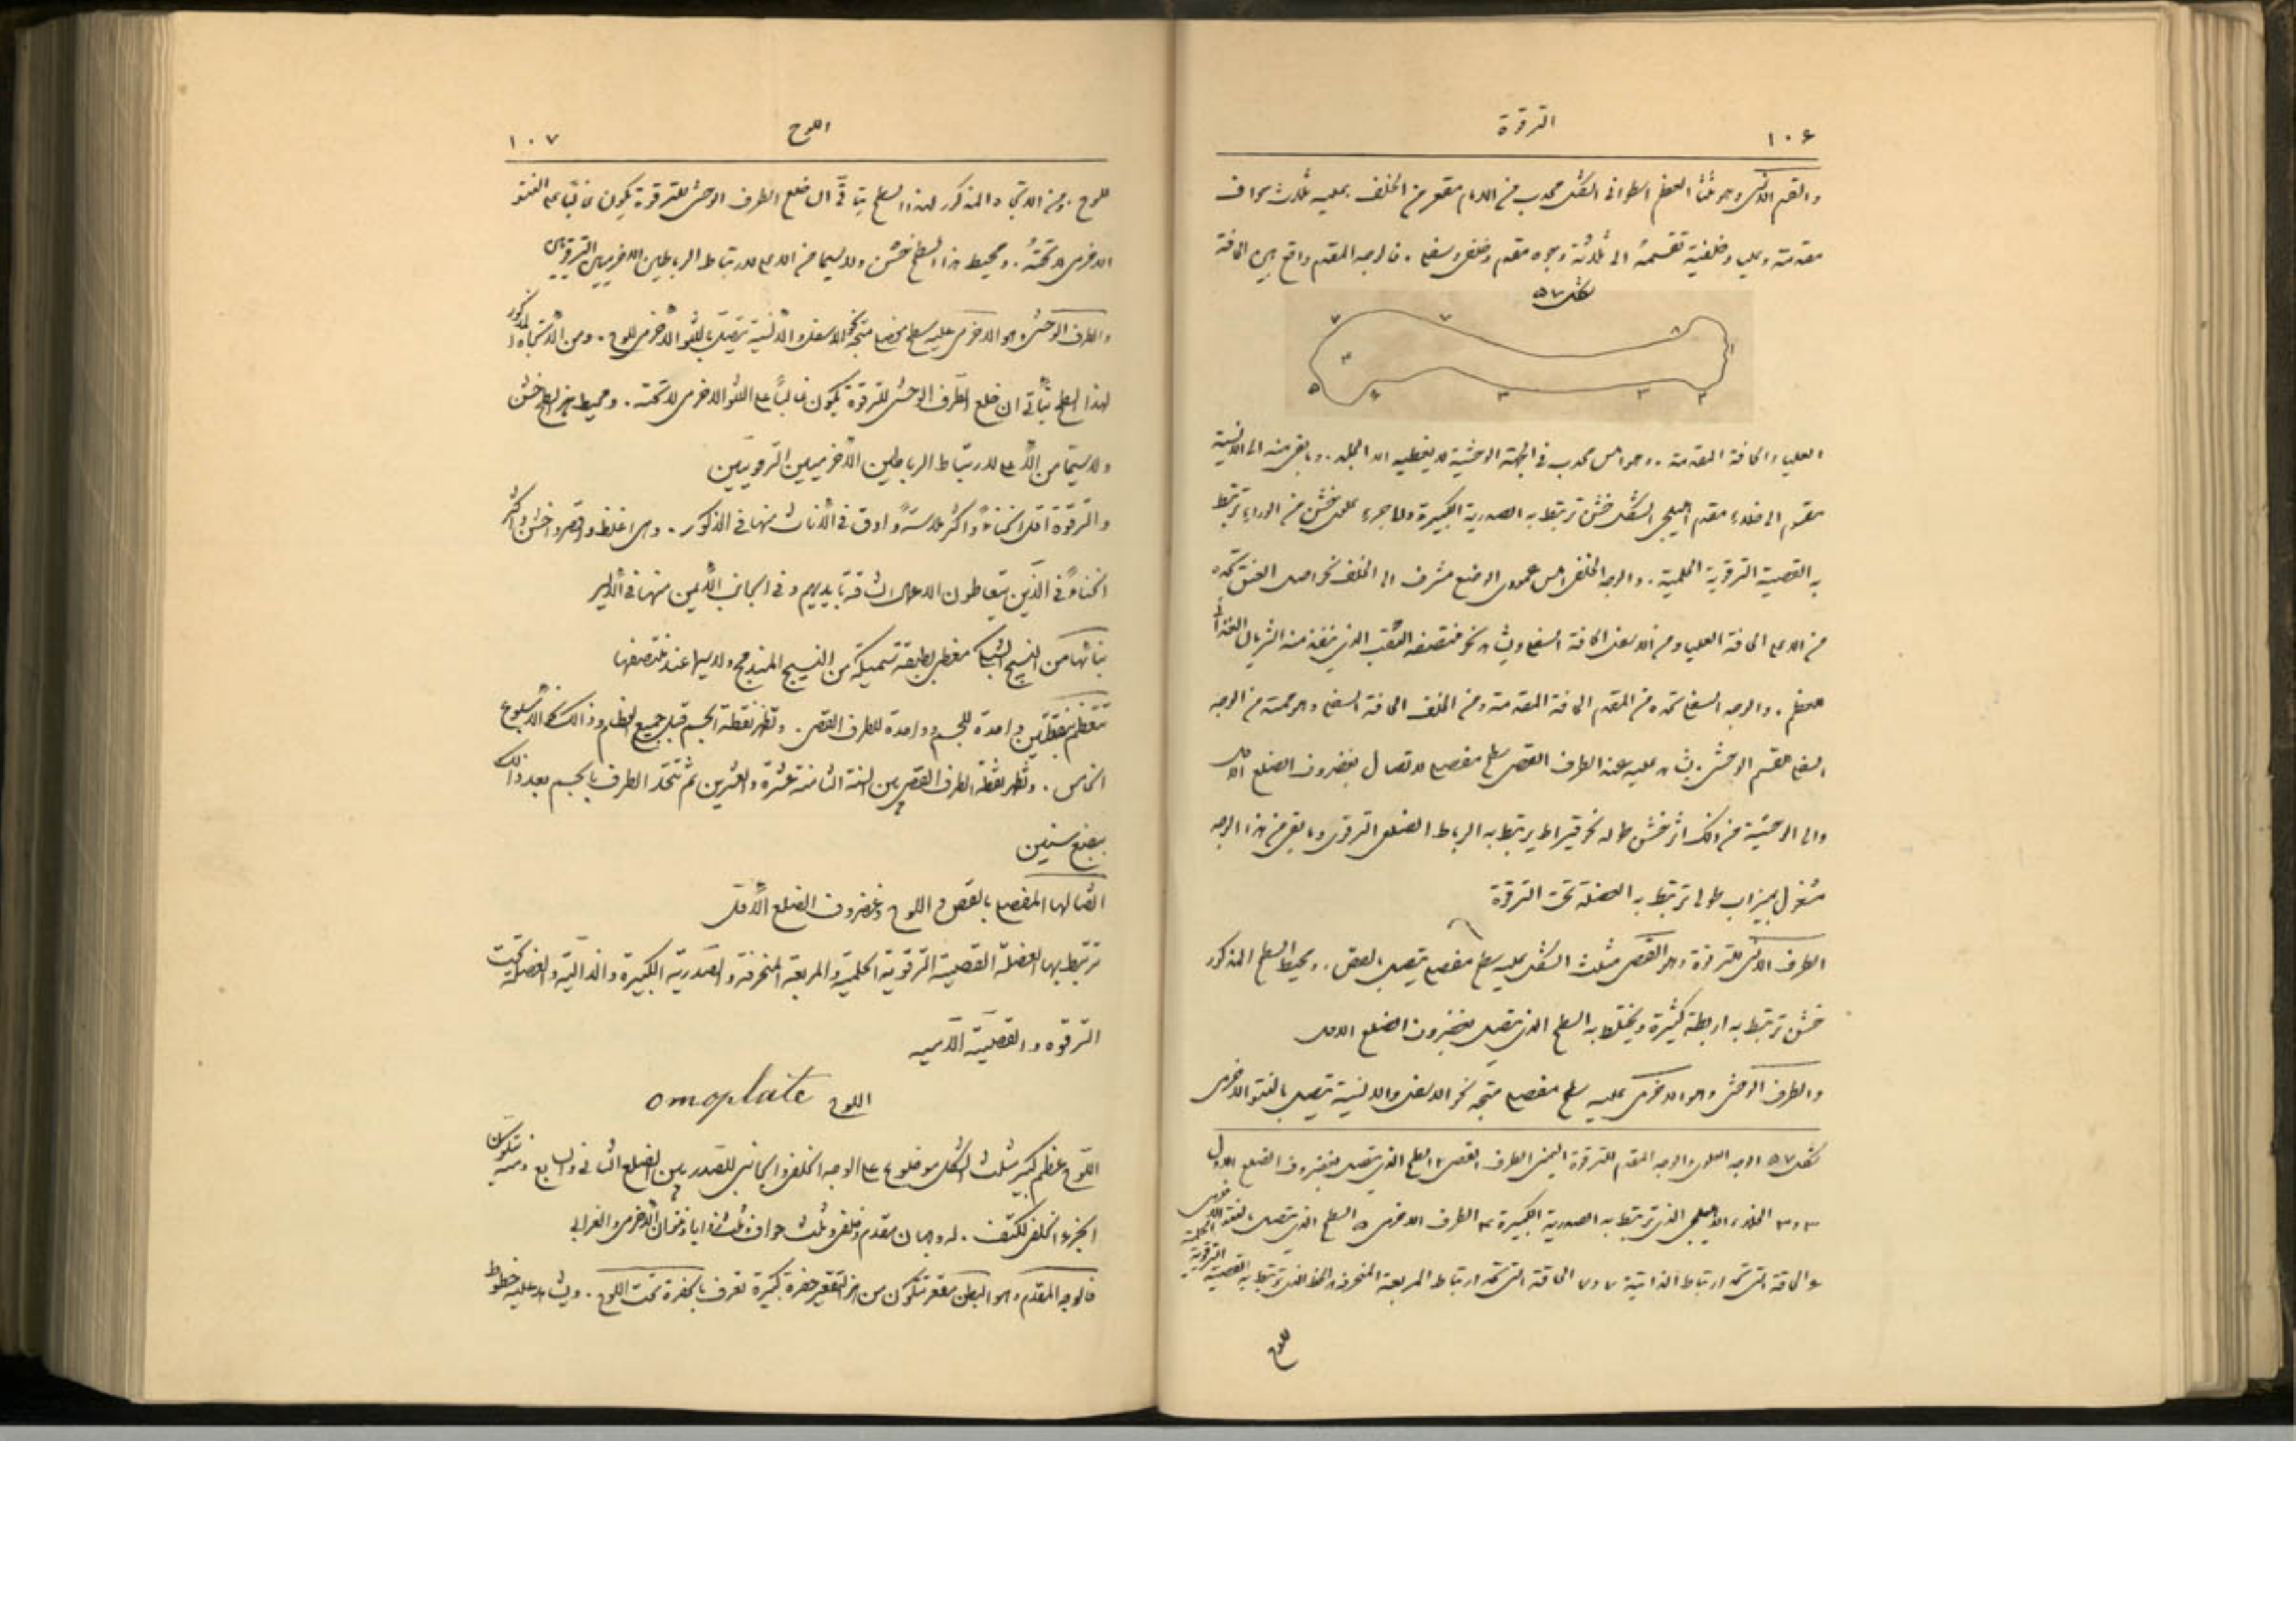 ١٠٦
الترقوة
والقسم الانسى وهو ثلثا العظم اسطوانى الشكل محدب من الامام مقعر من الخلف . عليه ثلاث حواف
مقدمة وعليا وخلفية تقسمه الى ثلاثة وجوه مقدم وخلفى وسفلى . فالوجه المقدم واقع بين الحافة
شكل ٥٧
٧ ٧ ٨ ١
٤
٥ ٦ ٣ ٣ ٢
العليا والحافة المقدمة . وهو املس محدب فى الجهة الوحشية لا يغطيه الا الجلد . وما بقى منه الى الانسية
مقسوم الى خلاء مقدم اهليلجى الشكل خشن ترتبط به الصدرية الكبيرة وجزء علوى خشن من الوراء ترتبط
به القصية الترقوية الحلمية . والوجه الخلفى املس عمودى الوضع مشرف الى الخلف نحو اصل العنق تحده
من الاعلى الحافة العليا ومن الاسفل الحافة السفلى ويشاهد نحو منتصفه الثقب الذى ينفذ منه الشريان الغذائى
للعظم . والوجه السفلى تحده من المقدم الحافة المقدمة ومن الخلف الحافة السفلى وهو تتمة من الوجه
السفلى للقسم الوحشى . يشاهد عليه عند الطرف القصى سطح مفصلى لاتصال بغضروف الضلع الاول
والى الوحشية من ذلك اثر خشن طوله نحو قيراط يرتبط به الرباط الضلعى الترقوى وما بقى من هذا الوجه
مشغول بميزاب طولى ترتبط به العضلة تحت الترقوة
الطرف الانسى للترقوة وهو القصى مثلث الشكل عليه سطح مفصلى يتصل بالقص . ومحيط السطح المذكور
خشن ترتبط به اربطة كثيرة ويختلط به السطح الذى يتصل بغضروف الضلع الاول
والطرف الوحشى وهو الاخرمى عليه سطح مفصلى متجه نحو الاسفل والانسية يتصل بالنتو الاخرمى
شكل ٥٧ الوجه العلوى والوجه المقدم للترقوة اليمنى ١ الطرف القصى ٢ السطح الذى يتصل بغضروف الضلع الاول
٣ و ٣ الخلاء الاهليلجى الذى ترتبط به الصدرية الكبيرة ٤ الطرف الاخرمى ٥ السطح الذى يتصل بالنتو الاخرمى
٦ الحافة التى تحد ارتباط الذالية ٧ و ٧ الحافة التى تحد ارتباط المربعة المنحرفة ٨ الخط الذى ترتبط به القصية الترقوية الحلمية
للوح
اللوح
١٠٧
للوح . ومن الاتجاه المذكور لهذا السطح يتأتى ان خلع الطرف الوحشى للترقوة يكون غالبا على النتو
الاخرمى لا تحته . ومحيط هذا السطح خشن ولا سيما من الاعلى لارتباط الرباطين الاخرميين الترقويين
والطرف الوحشى وهو الاخرمى عليه سطح مفصلى متجه نحو الاسفل والانسية يتصل بالنتو الاخرمى للوح . ومن الاتجاه المذكور
لهذا السطح يتأتى ان خلع الطرف الوحشى للترقوة يكون غالبا على النتو الاخرمى لا تحته . ومحيط هذا السطح خشن
ولا سيما من الاعلى لارتباط الرباطين الاخرميين الترقويين
والترقوة اقل انحناءً واكثر ملاسةً وادق فى الاناث منها فى الذكور . وهى اغلظ واقصر واخشن واكثر
انحناءً فى الذين يتعاطون الاعمال الشاقة بايديهم وفى الجانب الايمن منها فى الايسر
بنائها من النسيج الشبكى مغطى بطبقة سميكة من النسيج المندمج ولاسيما عند منتصفها
تتعظم بنقطتين واحدة للجسم وواحدة للطرف القصى . وتظهر نقطة الجسم قبل جميع العظام وذالك نحو الاسبوع
الخامس . وتظهر نقطة الطرف القصى بين السنة الثامنة عشرة والعشرين ثم تتحد الطرف بالجسم بعد ذالك
ببضع سنين
اتصالها المفصلى بالقص واللوح وغضروف الضلع الاول
ترتبط بها العضلة القصية الترقوية الحلمية والمربعة المنحرفة والصدرية الكبيرة والذالية والعضلة تحت
الترقوه والقصية اللامية
اللوح omoplate
اللوح عظم كبير مثلث الشكل موضوع على الوجه الخلفى والجانبى للصدر بين الضلع الثانى والسابع ومنه يتكون
الجزء الخلفى للكتف . له وجهان مقدم وخلفى وثلث حواف وثلث زوايا ونتوان الاخرمى والغرابى
فالوجه المقدم وهو البطن مقعر تتكون من هذا التقعير حفرة كبيرة تعرف بالحفرة تحت اللوح . ويشاهد عليه خطوط